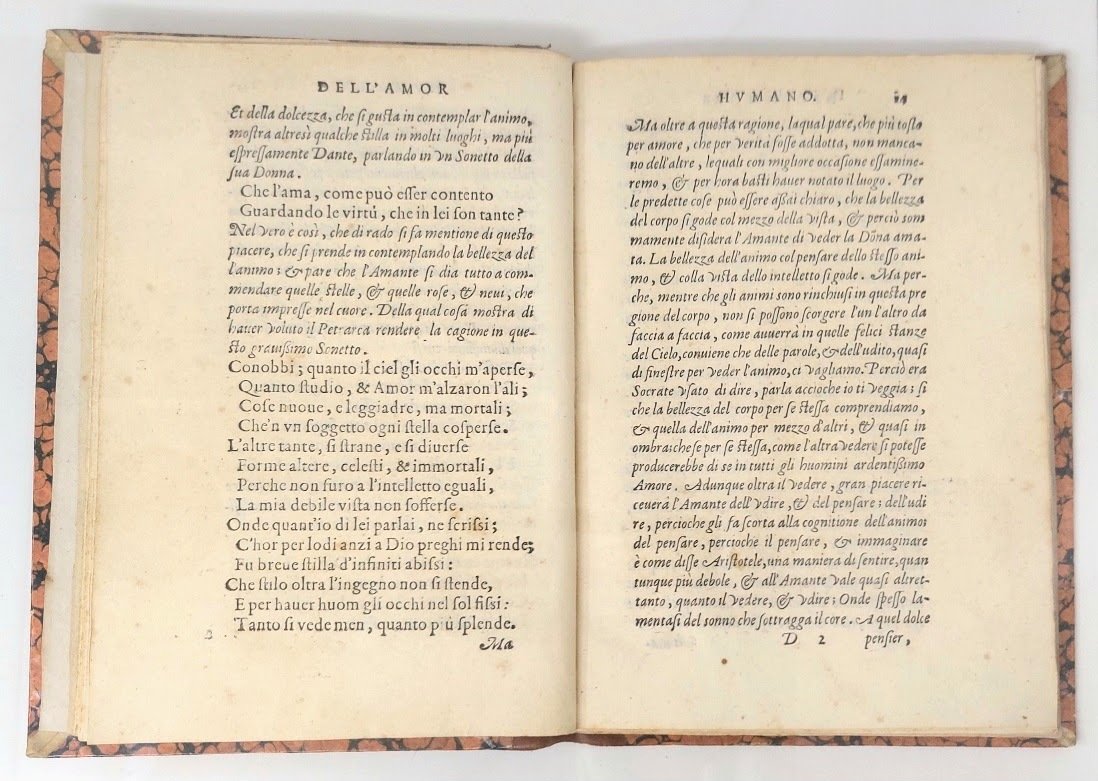 DELL'AMOR
Et della dolcezza, che si gusta in contemplar l'animo,
mostra altresì qualche stilla in molti luoghi, ma più
espressamente Dante, parlando in vn Sonetto della
sua Donna.
Che l'ama, come può esser contento
Guardando le virtù, che in lei son tante?
Nel vero è così, che di rado si fa mentione di questo
piacere, che si prende in contemplando la bellezza del
l'animo; & pare che l'Amante si dia tutto a com-
mendare quelle stelle, & quelle rose, & neui, che
porta impresse nel cuore. Della qual cosa mostra di
hauer voluto il Petrarca rendere la cagione in que-
sto grauissimo Sonetto.
Conobbi; quanto il ciel gli occhi m'aperse,
Quanto studio, & Amor m'alzaron l'ali;
Cose nuoue, e leggiadre, ma mortali;
Che'n vn soggetto ogni stella cosperse.
L'altre tante, si strane, e si diuerse
Forme altere, celesti, & immortali,
Perche non furo a l'intelletto eguali,
La mia debile vista non sofferse.
Onde quant'io di lei parlai, ne scrissi;
C'hor per lodi anzi a Dio preghi mi rende;
Fu breue stilla d'infiniti abissi:
Che stilo oltra l'ingegno non si stende,
E per hauer huom gli occhi nel sol fissi:
Tanto si vede men, quanto più splende.
Ma
HVMANO. 14
Ma oltre a questa ragione, laqual pare, che più tosto
per amore, che per verità fosse addotta, non manca-
no dell'altre, lequali con migliore occasione essamine-
remo, & per hora basti hauer notato il luogo. Per
le predette cose può essere assai chiaro, che la bellezza
del corpo si gode col mezzo della vista, & perciò som
mamente disidera l'Amante di veder la Dōna ama-
ta. La bellezza dell'animo col pensare dello stesso ani-
mo, & colla vista dello intelletto si gode. Ma per-
che, mentre che gli animi sono rinchiusi in questa pre
gione del corpo, non si possono scorgere l'un l'altro da
faccia a faccia, come auuerrà in quelle felici stanze
del Cielo, conuiene che delle parole, & dell'udito, quasi
di finestre per veder l'animo, ci vagliamo. Perciò era
Socrate vsato di dire, parla accioche io ti veggia: si
che la bellezza del corpo per se stessa comprendiamo,
& quella dell'animo per mezzo d'altri, & quasi in
ombra; che se per se stessa, come l'altra vedere si potesse
producerebbe di se in tutti gli huomini ardentissimo
Amore. Adunque oltra il vedere, gran piacere ri-
ceuerà l'Amante dell'vdire, & del pensare; dell'udi
re, percioche gli fa scorta alla cognitione dell'animo:
del pensare, percioche il pensare, & immaginare
è come disse Aristotele, una maniera di sentire, quan
tunque più debole, & all'Amante vale quasi altret-
tanto, quanto il vedere, & vdire; Onde spesso la-
mentasi del sonno che sottragga il core. A quel dolce
D 2 pensier,